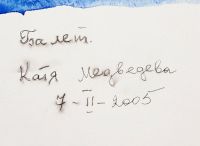 Балет.
Катя Медведева
7-II-2005